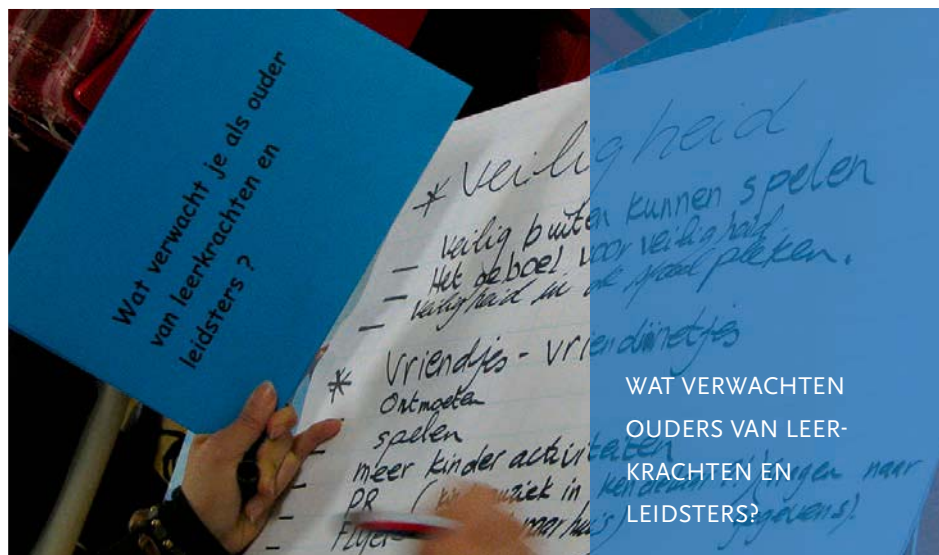 Wat verwacht je als ouder
van leerkrachten en
leidsters ?
* Veiligheid
– veilig buiten kunnen spelen
– Het voor veiligheid
– veiligheid in de speelplekken.
* Vriendjes - vriendinnetjes
– Ontmoeten
– spelen
– meer kinder activiteiten
– PR ( in naar
– Flyers naar huis) gegevens).
WAT VERWACHTEN
OUDERS VAN LEER-
KRACHTEN EN
LEIDSTERS?